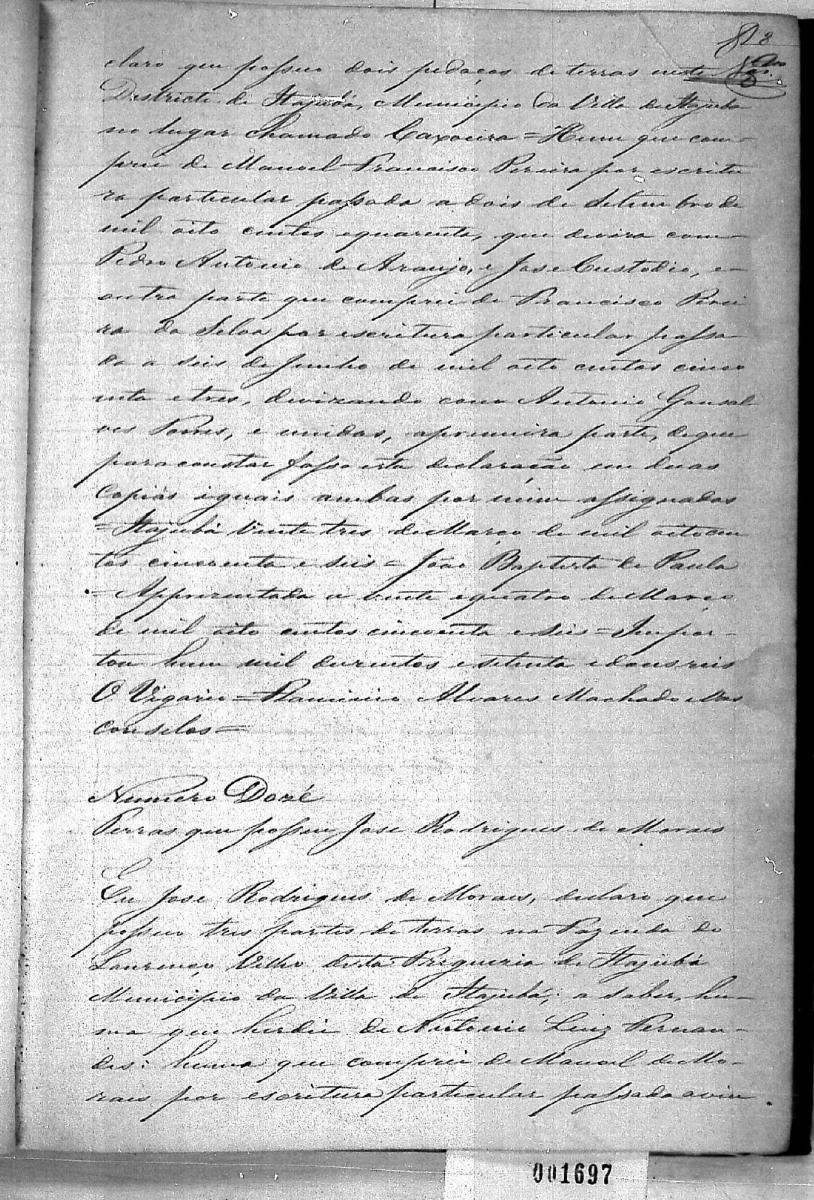 8
claro que possuo dois pedaços de terras neste
Districto de Itajubá, Municipio da Villa de Itajubá
no lugar chamado Caxoeira = Hum que com-
prei de Manoel Francisco Pereira por escritu
ra particular passada a dois de Setembro de
mil oito centos equarenta, que deviza com
Pedro Antonio de Araujo, e Jose Custodio, e
outra parte que comprei de Francisco Perei
ra da Silva por escritura particular passa
da a seis de Junho de mil oito centos cinco
enta etres, devizando com Antonio Gonsal
ves, e unidas, aprimeira parte, de que
para constar fasso esta declaração em duas
Copias iguais ambas por mim assignadas
= Itajubá vinte tres de Março de mil oitocen
tos cincoenta e seis = João Baptista de Paula
= Appresentada a vinte equatro de Março
de mil oito centos cincoenta e seis = Impor-
tou hum mil duzentos e setenta edous reis
O Vigario = Alvares Machado e Vas
concelos =
Numero Doze
Terras que possue Jose Rodrigues de Moraes
Eu Jose Rodrigues de Moraes, declaro que
possuo tres partes de terras na Fazenda do
Lourenço Velho desta Freguezia de Itajubá
Municipio da Villa de Itajubá; a saber, hu-
ma que herdei de Antonio Luiz Fernan-
des: huma que comprei de Manoel de Mo-
raes por escritura particular passada a vin
001697